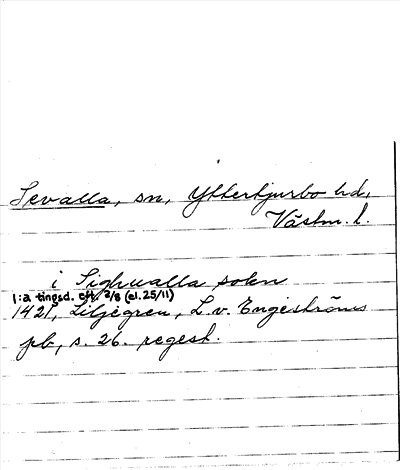 Sevalla, sn, Ytterkjurbo hd,
Västm. l.
i Sighualla sokn
1:a tingsd. eft. 2/8 (el. 25/11)
1421, Liljegren, L. v. Engeströms
pb, s. 26. regest.